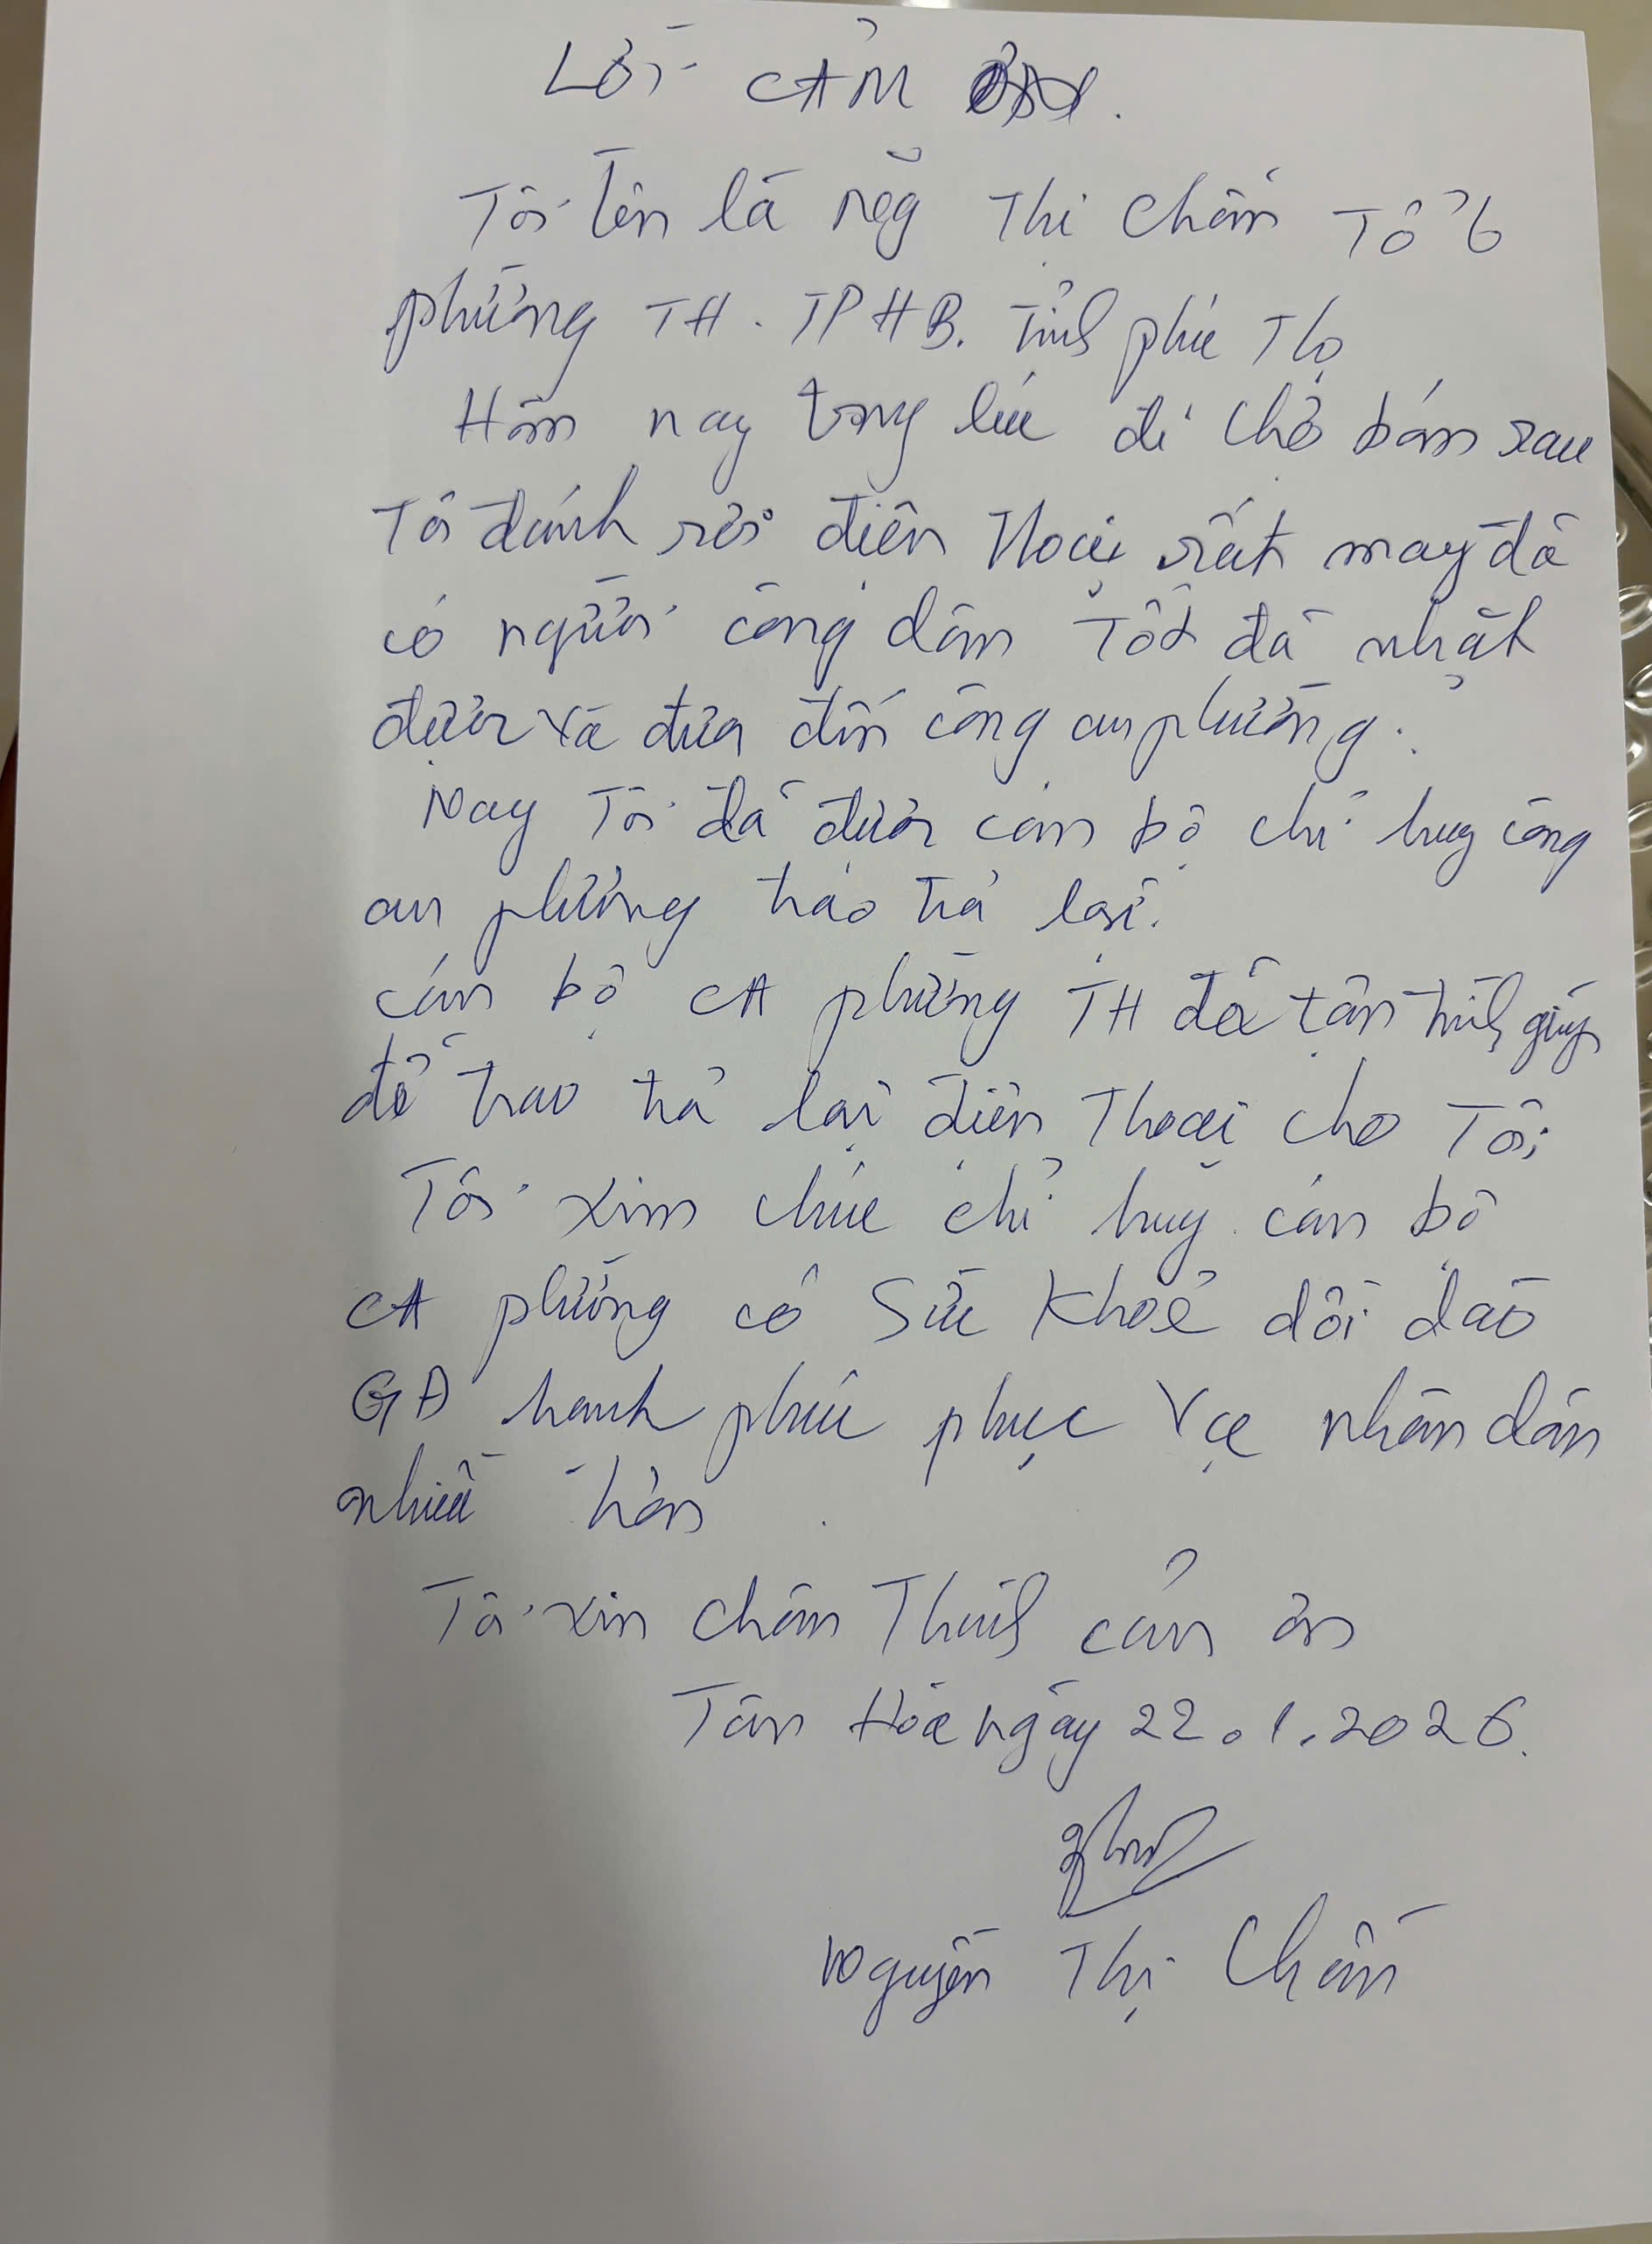 LỜI CẢM ƠN.
Tôi tên là Ng̃ Thị Chấn Tổ 6
phường TH. TPHB. Tỉnh phú Thọ
Hôm nay trong lúc đi chợ bán rau
Tôi đánh rơi điện thoại rất may đã
có người công dân Tốt đã nhặt
được và đưa đến công an phường.
Nay Tôi đã được cán bộ chỉ huy công
an phường trao trả lại.
cán bộ CA phường TH đã tận tình giúp
đỡ trao trả lại điện Thoại cho Tôi
Tôi xin chúc chỉ huy cán bộ
CA phường có Sức khoẻ dồi dào
GĐ hạnh phúc phục vụ nhân dân
nhiều hơn
Tôi xin chân Thành cảm ơn
Tân Hòa ngày 22.1.2026.
Nguyễn Thị Chấn